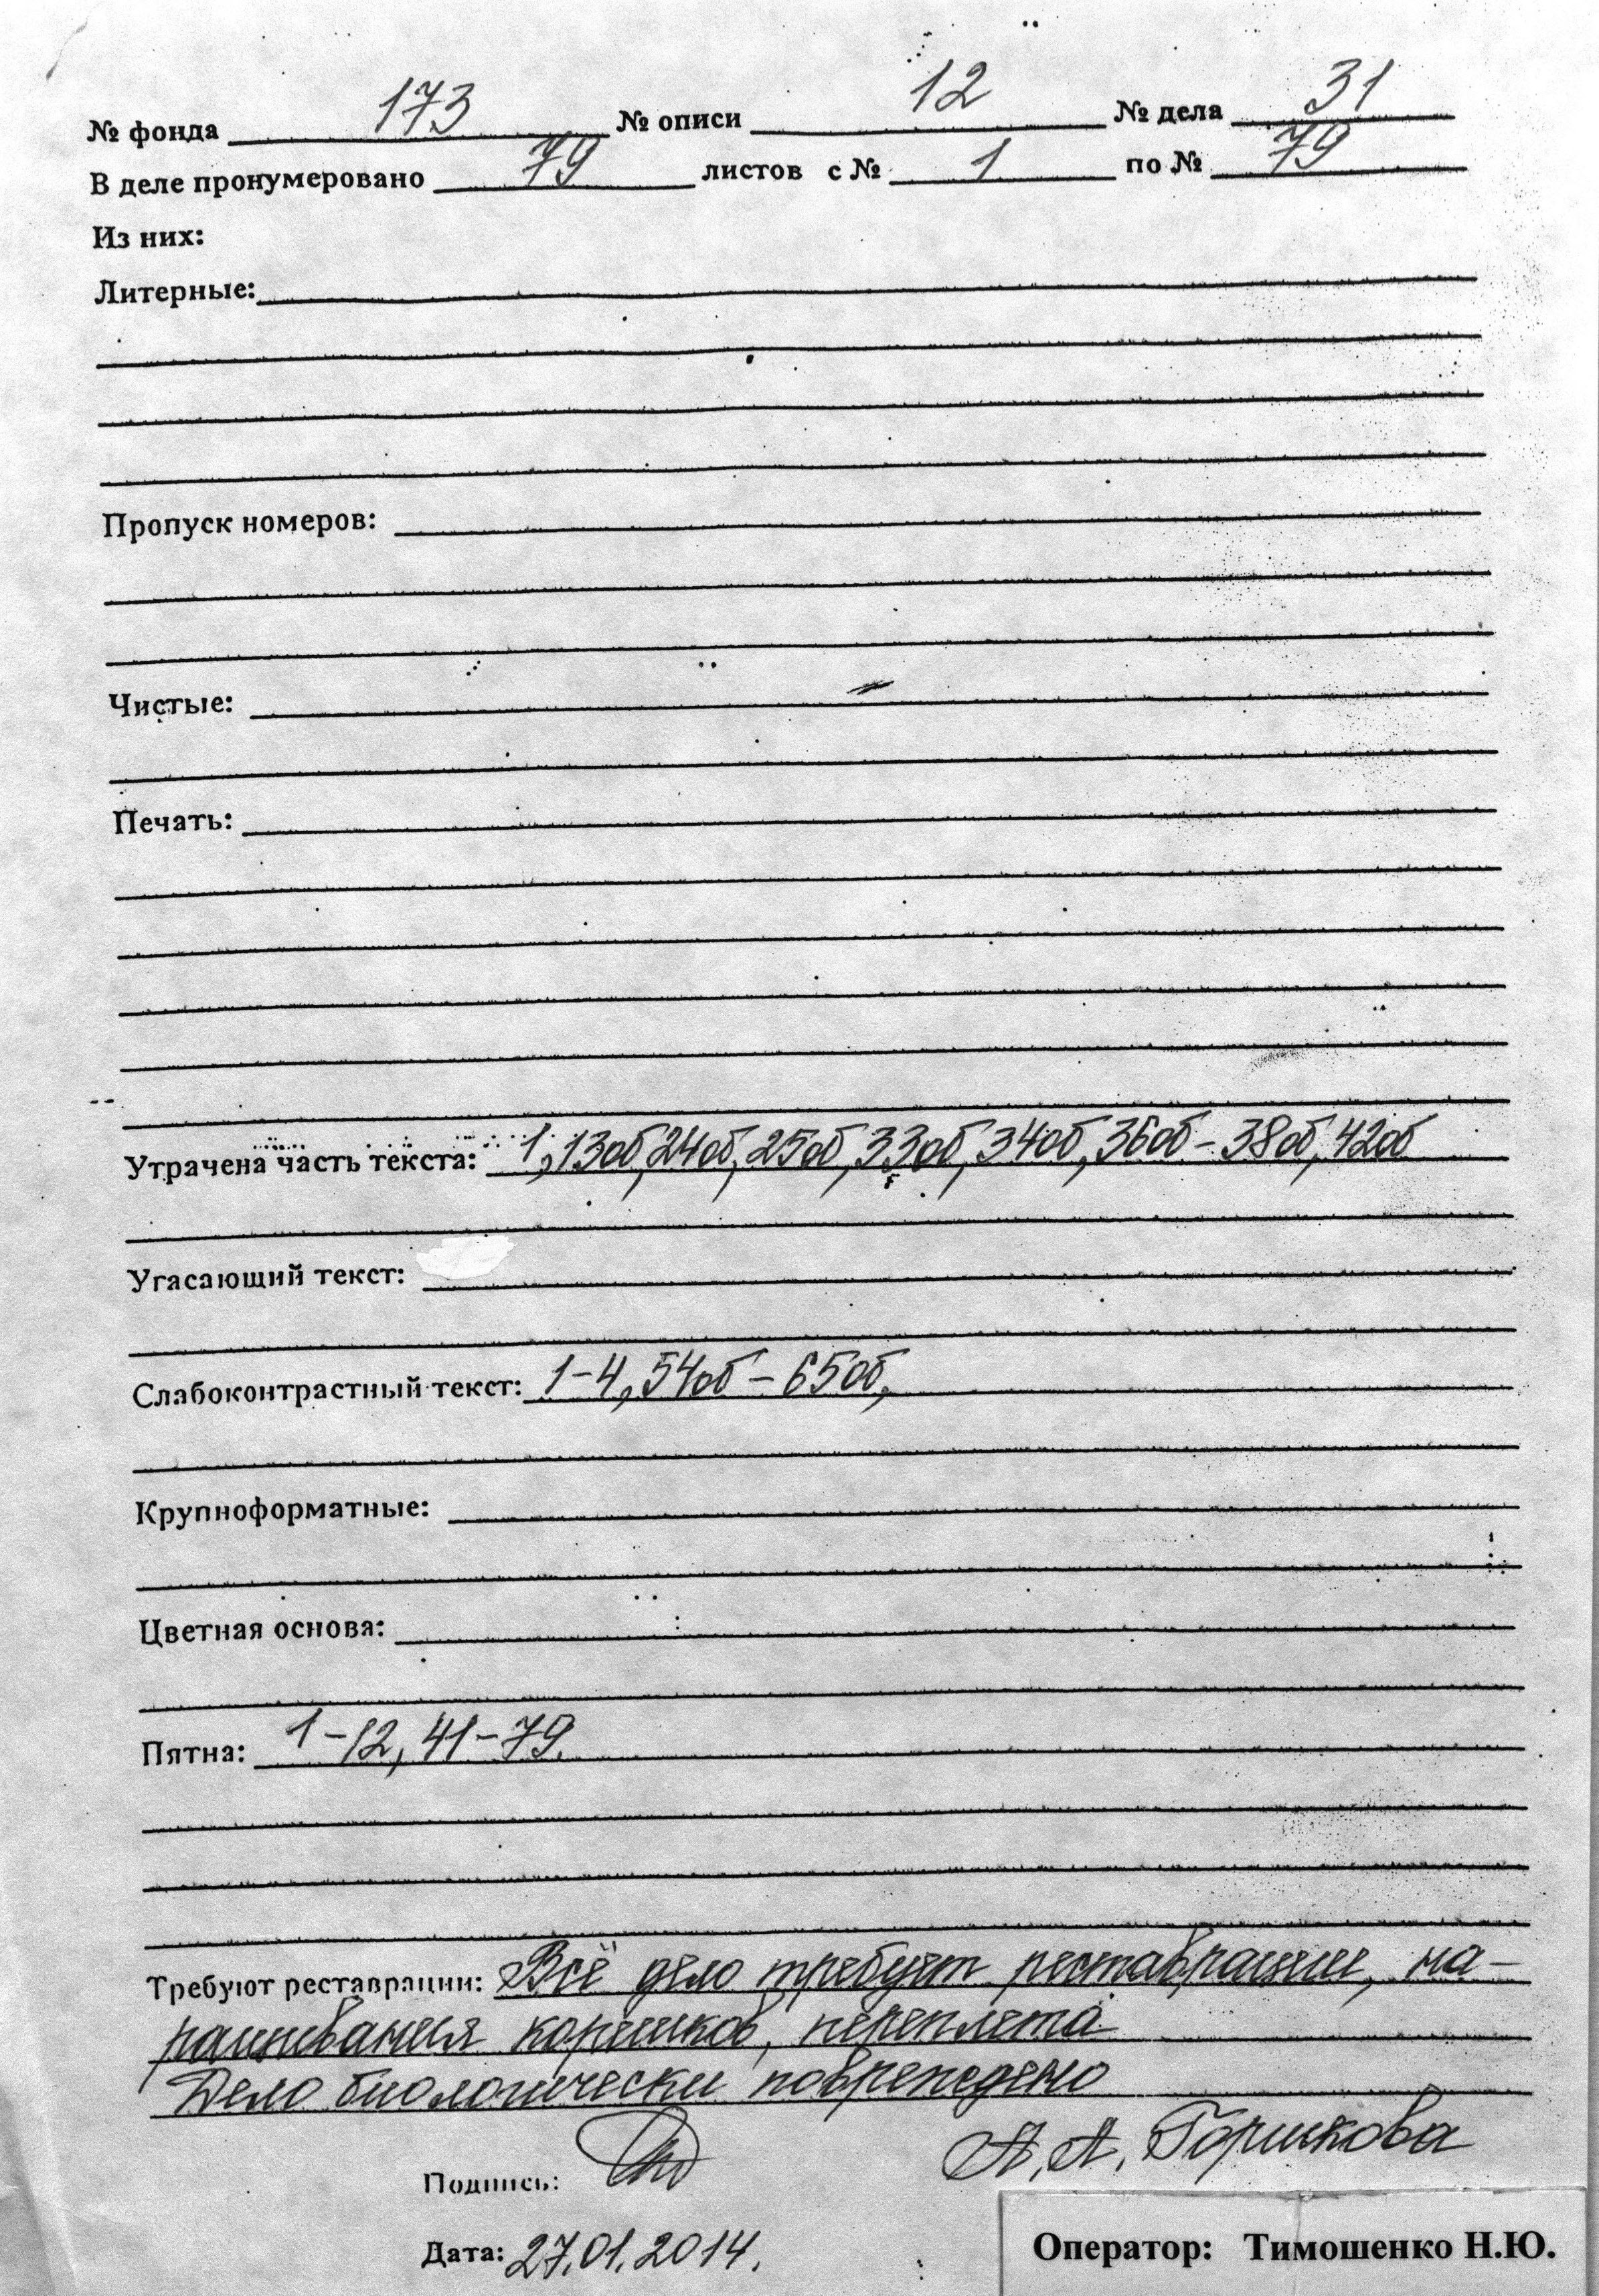 № фонда 173 № описи 12 № дела 31
В деле пронумеровано 79 листов с № 1 по № 79
Из них:
Литерные:
Пропуск номеров:
Чистые:
Печать:
Утрачена часть текста: 1, 13об, 24об, 25об, 33об, 34об, 36об – 38об, 42об
Угасающий текст:
Слабоконтрастный текст: 1-4, 54об – 65об,
Крупноформатные:
Цветная основа:
Пятна: 1-12, 41-79.
Требуют реставрации: Всё дело требует реставрации, на-
ращивания корешков, переплёта
Дело биологически повреждено
Подпись: А.А. Горшкова
Дата: 27.01.2014.
Оператор: Тимошенко Н.Ю.